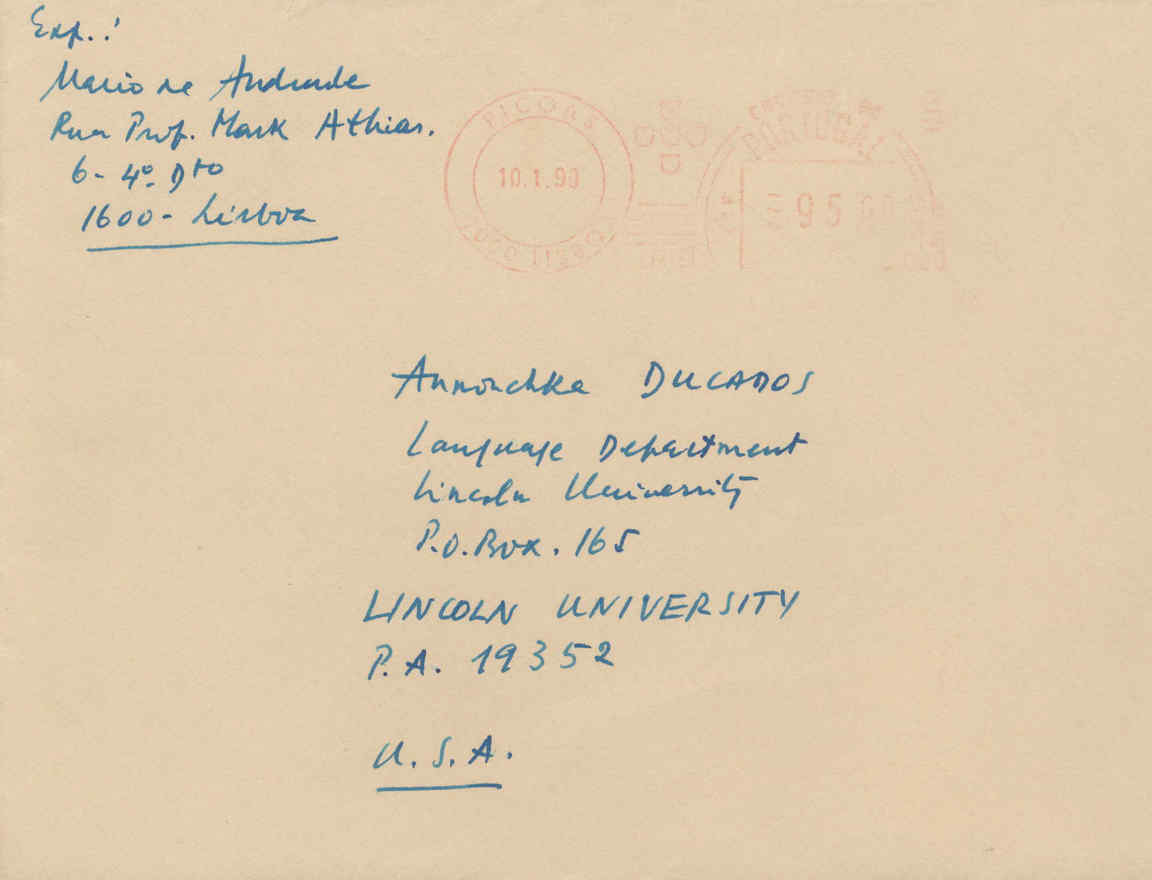 Exp.:
Mario de Andrade
Rua Prof. Mark Athias.
6- 4º. Dto
1600- Lisboa
PICOAS
10.1.90
1000 LISBOA
CORREIOS
PORTUGAL
95
Annouchka DUCADOS
Language Department
Lincoln University
P.O. Box. 165
LINCOLN UNIVERSITY
P.A. 19352
U.S.A.